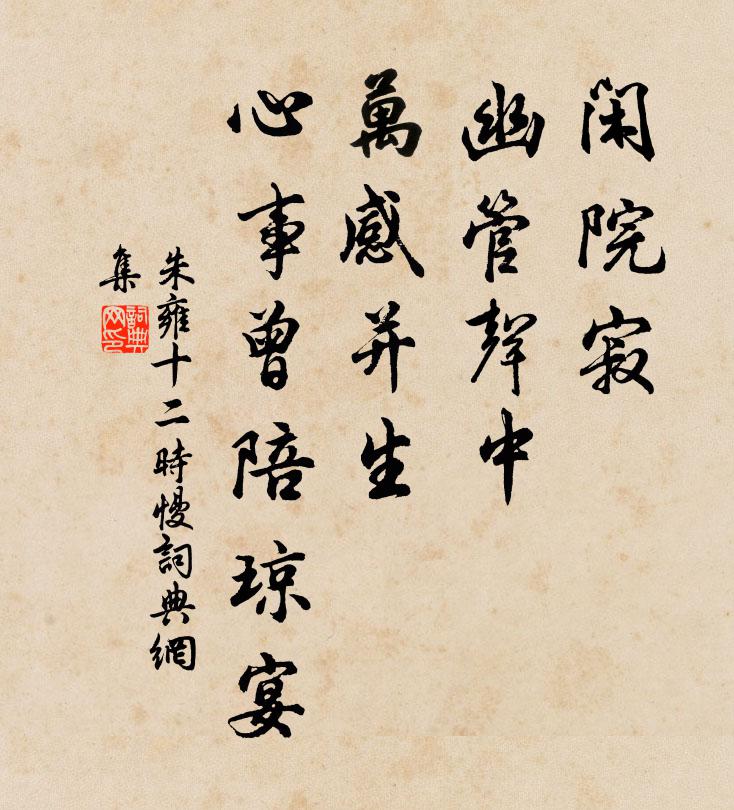 閑院寂
幽管聲中
萬感并生
心事曾陪琼宴
朱雍十二時慢詞典網
集
詞典
网印